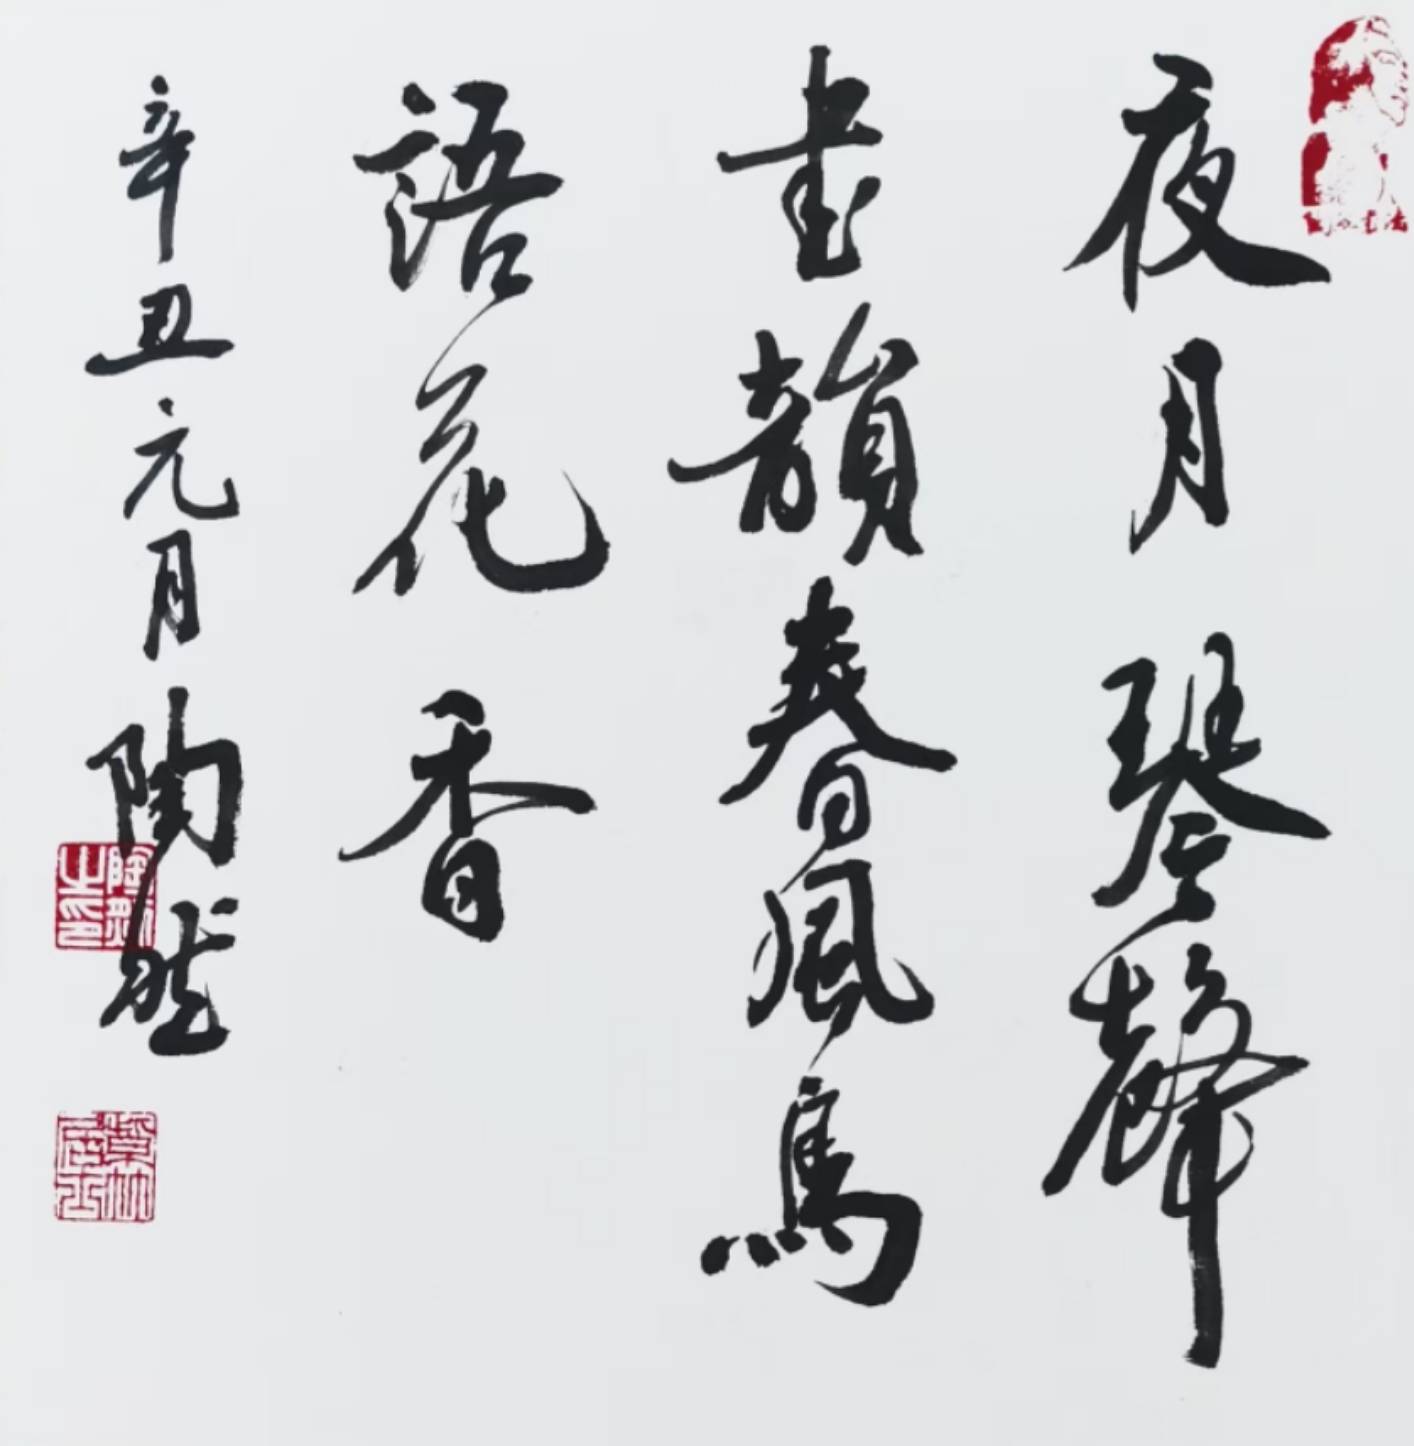 夜月琴聲
書韻春風鳥
語花香
辛丑元月陶然
陶然之印